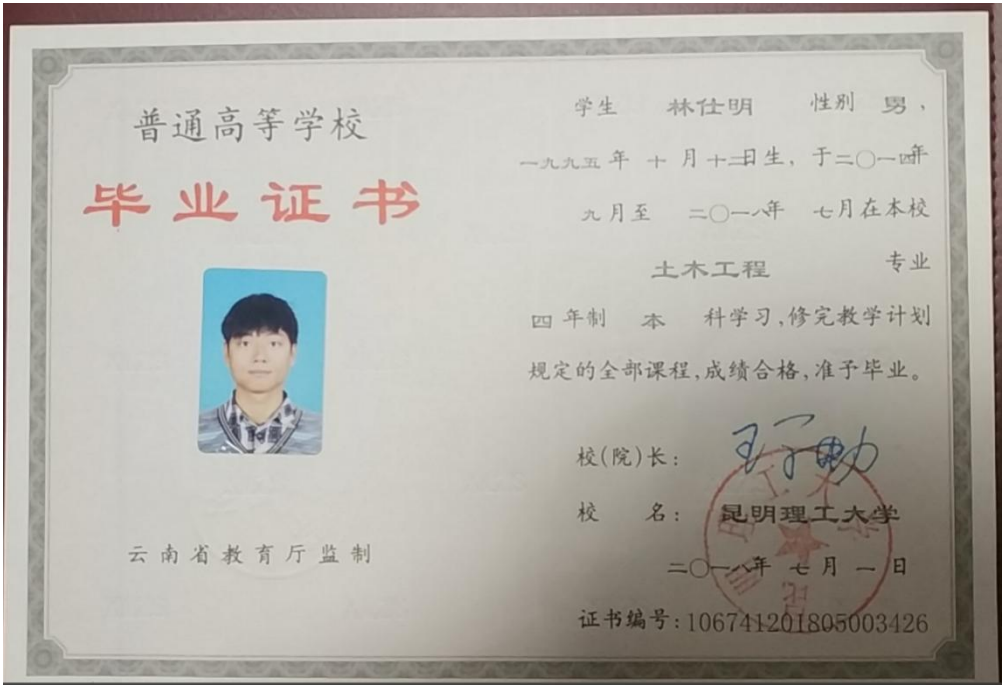 普通高等学校
毕业证书
云南省教育厅监制
学生 林仕明 性别 男、
一九九五年 十 月十二日生，于二〇一四年
九月至 二〇一八年 七月在本校
土木工程 专业
四 年制 本 科学习，修完教学计划
规定的全部课程，成绩合格，准予毕业。
校（院）长：
校 名： 昆明理工大学
二〇一八年 七 月 一 日
证书编号：106741201805003426